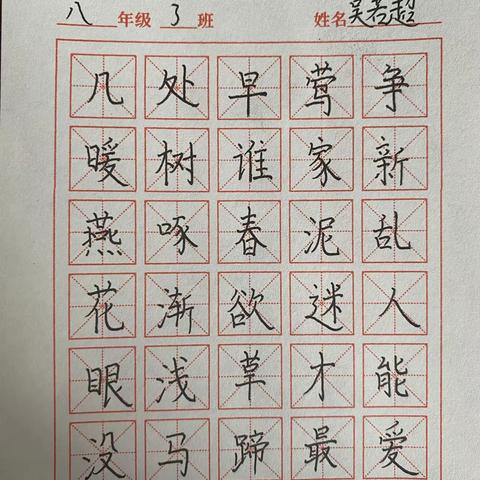 八年级 3 班 姓名吴若超
几处早莺争
暖树谁家新
燕啄春泥乱
花渐欲迷人
眼浅草才能
没马蹄最爱